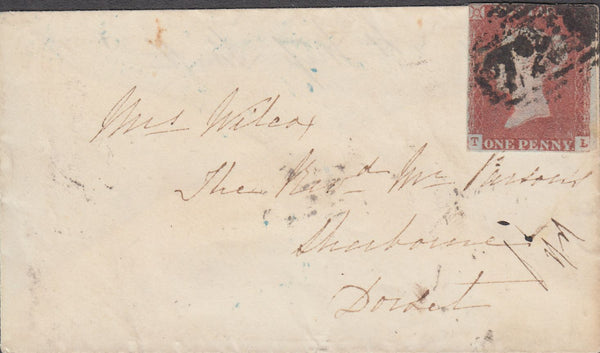 T ONE PENNY L
Mrs Wilcox
The Revd Mr Parsons
Sherbourne
Dorset